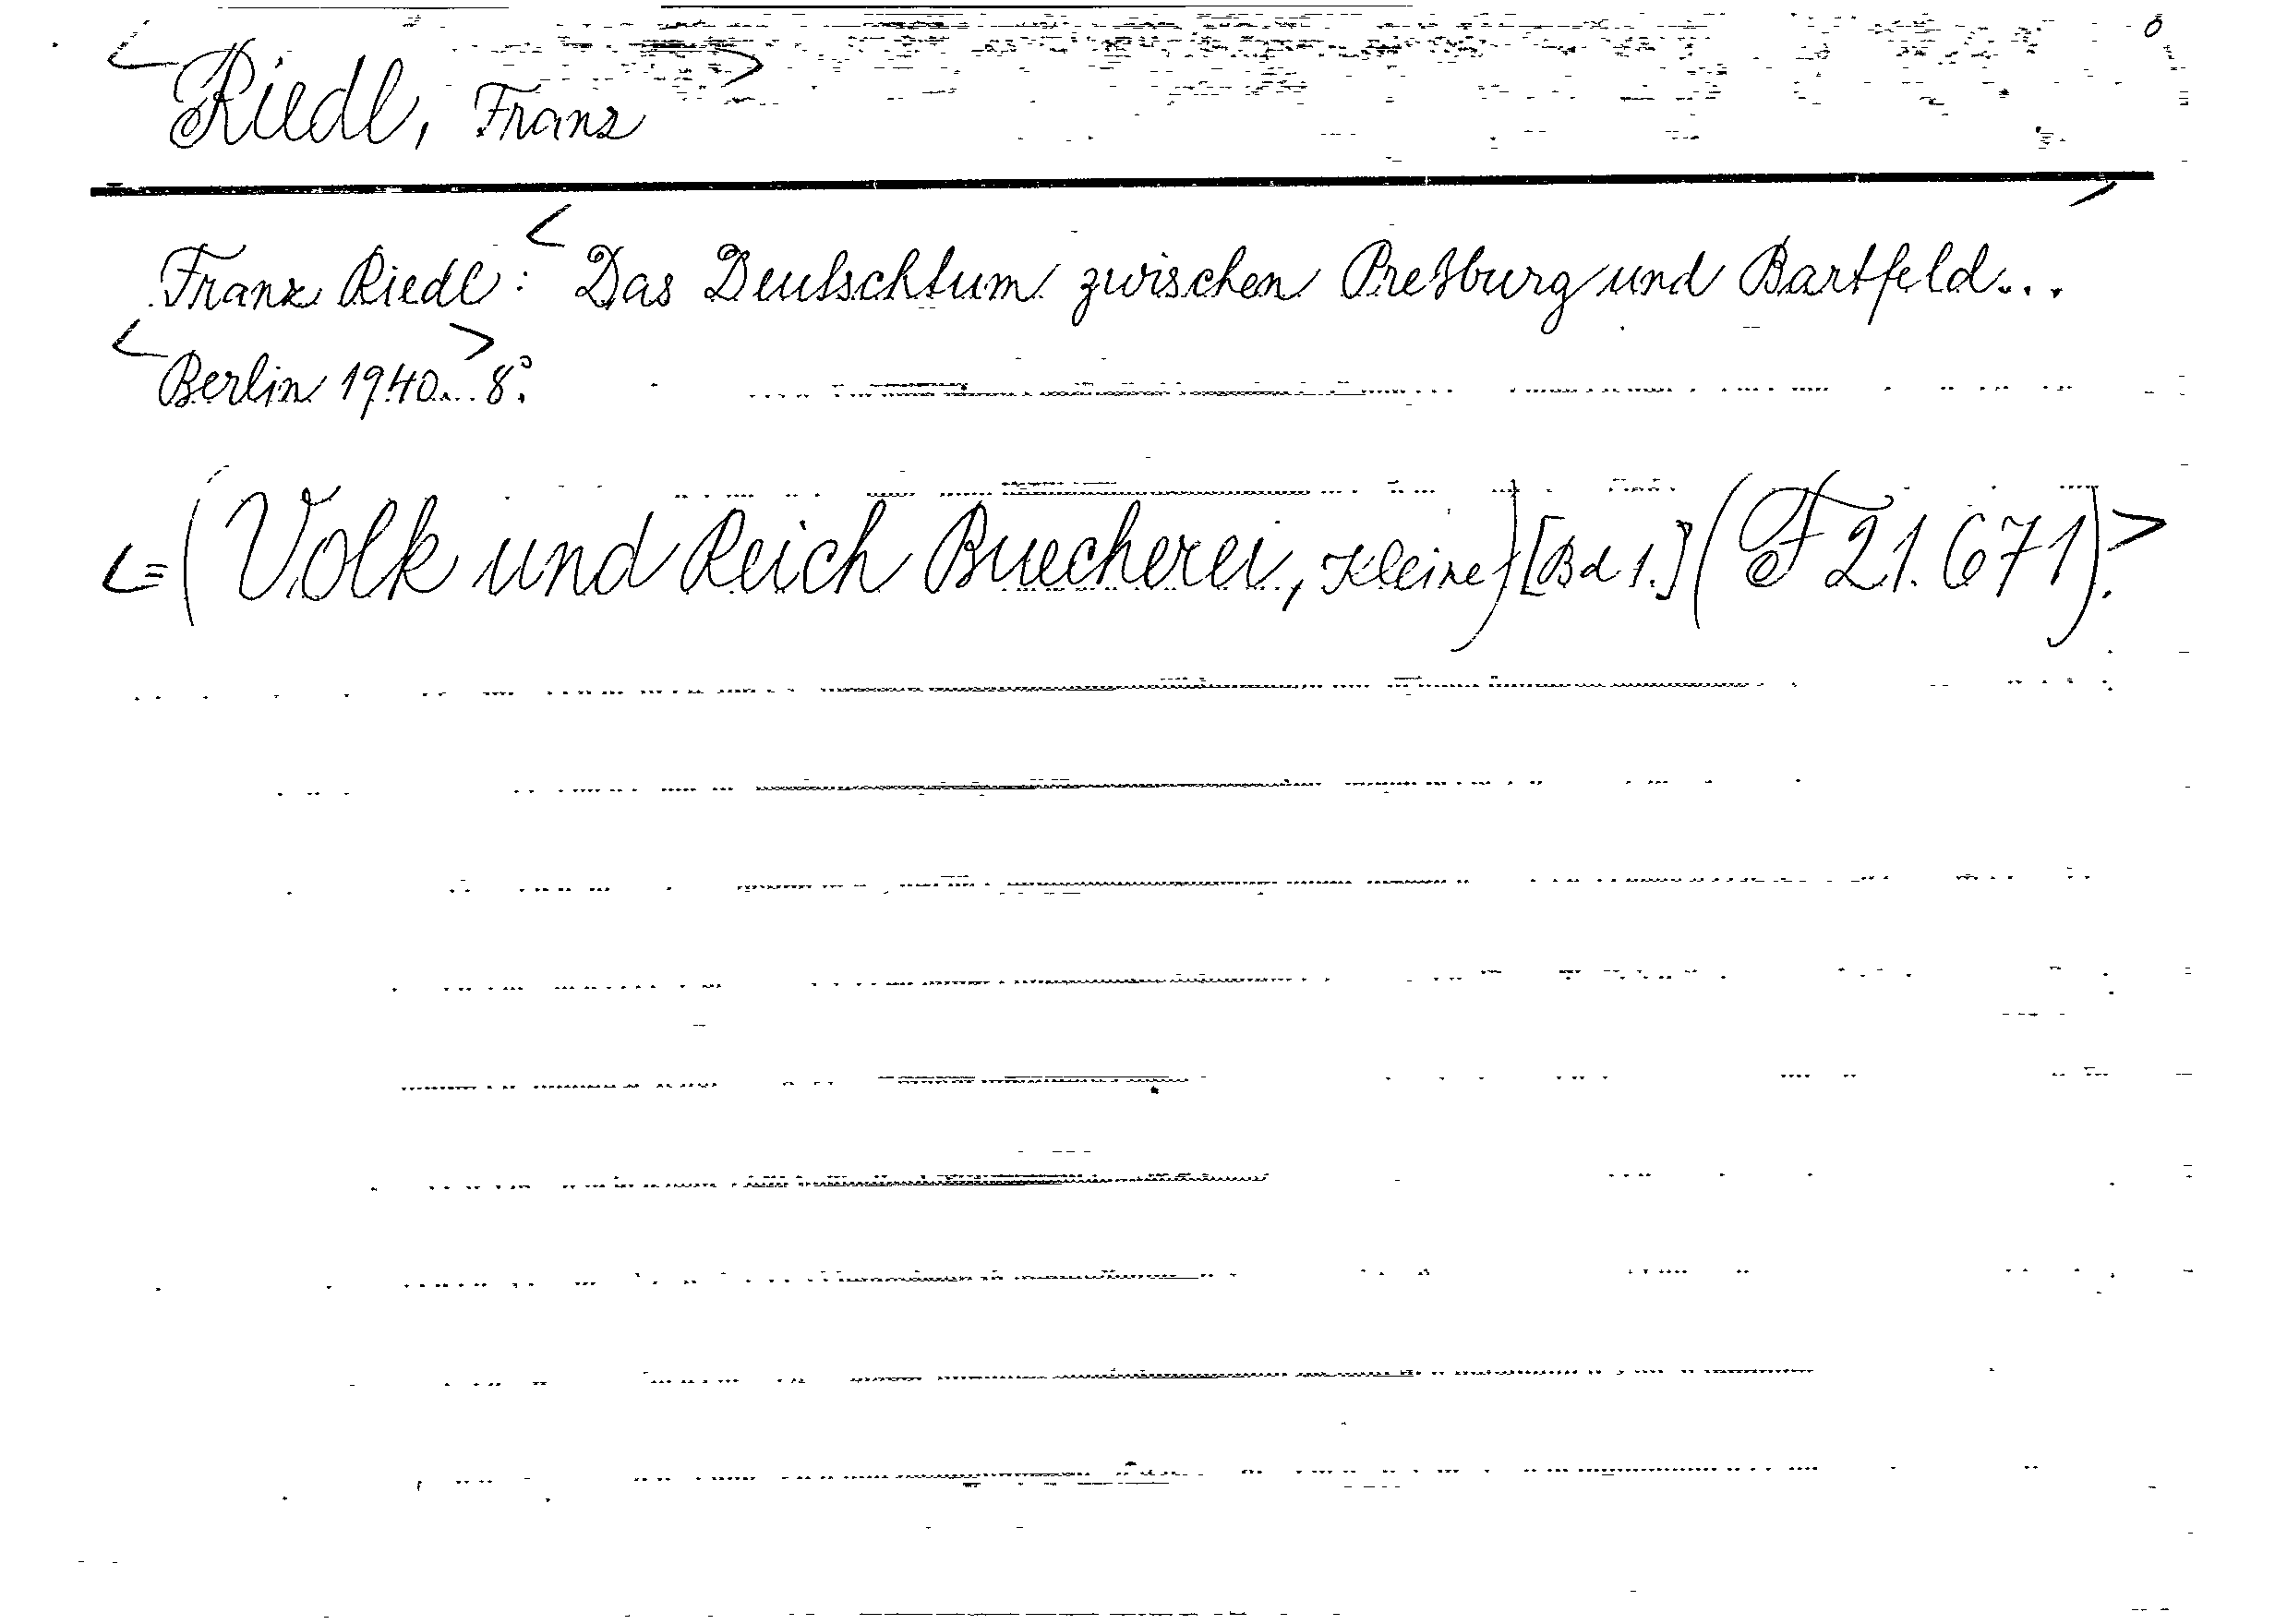 <Riedl, Franz>
Franz Riedl: <Das Deutschtum zwischen Preßburg und Bartfeld...>
<Berlin 1940...> 8°.
<=(Volk und Reich Buecherei, Kleine) [Bd 1.] (F 21.671).>